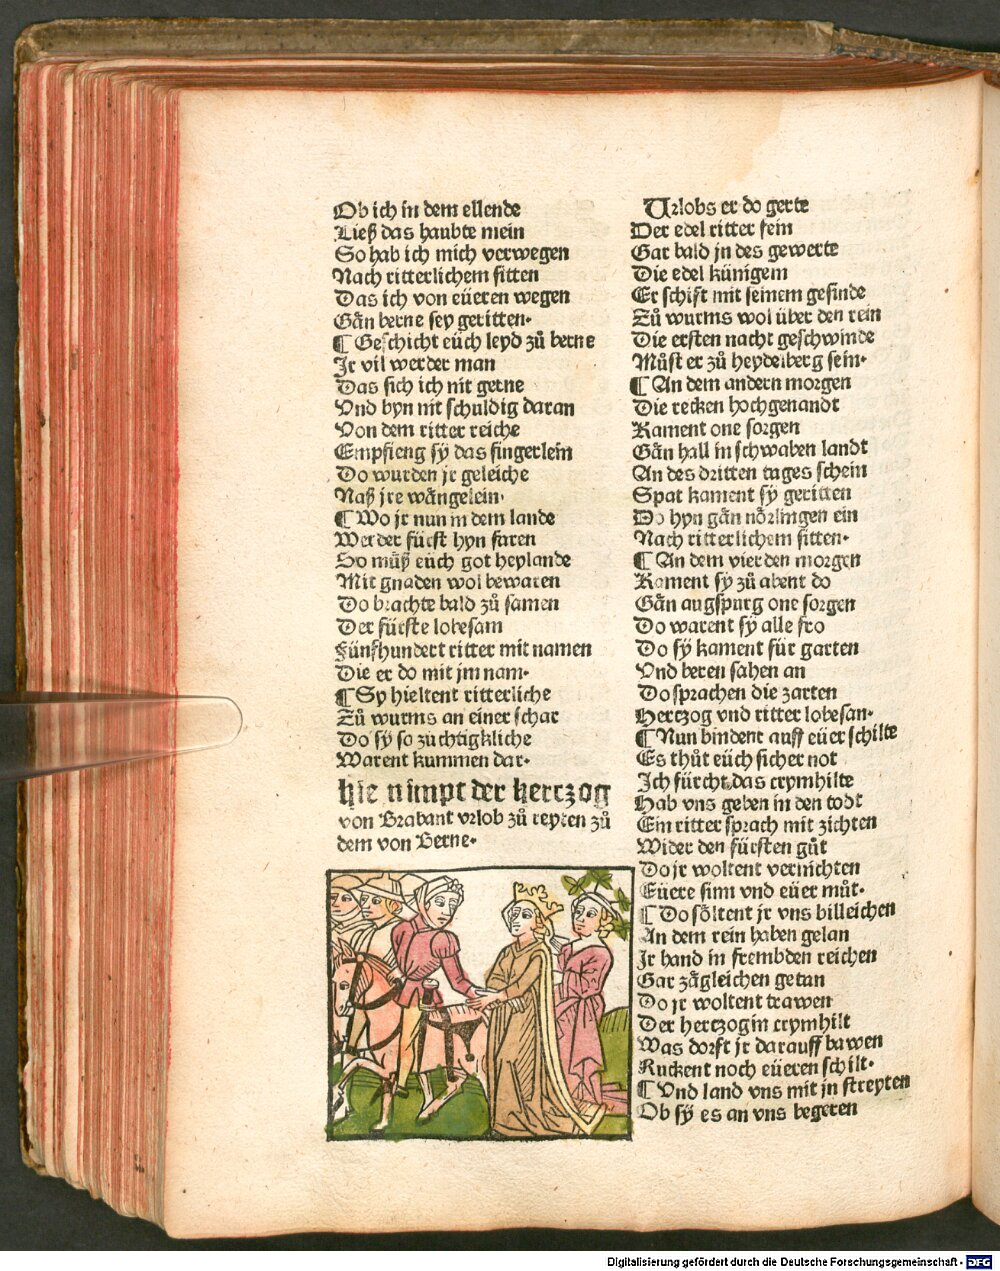 Ob ich in dem ellende
Ließ das haubte mein
So hab ich mich verwegen
Nach ritterlichem sitten
Das ich von eüeren wegen
Gãn berne sey geritten.
¶ Geschicht eüch leyd zů berne
Ir vil werder man
Das sich ich nit gerne
Vnd byn nit schuldig daran
Von dem ritter reiche
Empfieng sÿ das fingerlein
Do wurden jr geleiche
Naß jre wãngelein.
¶ Wo jr nun in dem lande
Werder fürst hyn faren
So müß eüch got heylande
Mit gnaden wol bewaren
Do brachte bald zů samen
Der fürste lobesam
Fünfhundert ritter mit namen
Die er do mit jm nam.
¶ Sy hieltent ritterliche
Zů wurms an einer schar
Do sÿ so zuchtigkliche
Warent kummen dar.
hie nimpt der hertzog
von Brabant vrlob zů reyten zů
dem von Berne.
Urlobs er do gerte
Der edel ritter fein
Gar bald jn des gewerte
Die edel künigein
Er schift mit seinem gesinde
Zů wurms wol über den rein
Die ersten nacht geschwinde
Můst er zů heydelberg sein.
¶ An dem andern morgen
Die recken hochgenandt
Kament one sorgen
Gãn hall in schwaben landt
An des dritten tages schein
Spat kament sÿ geritten
Do hyn gãn nõrlingen ein
Nach ritterlichem sitten.
¶ An dem vierden morgen
Kament sÿ zů abent do
Gãn augspurg one sorgen
Do warent sÿ alle fro
Do sÿ kament für garten
Vnd beren sahen an
Do sprachen die zarten
Hertzog vnd ritter lobesan.
¶ Nun bindent auff eüer schilte
Es thůt eüch sicher not
Ich fürcht das crymhilte
Hab vns geben in den todt
Ein ritter sprach mit zichten
Wider den fürsten gůt
Do jr woltent vernichten
Eüere sinn vnd eüer můt.
¶ Do sõltent jr vns billeichen
An dem rein haben gelan
Ir hand in frembden reichen
Gar zãgleichen getan
Do jr woltent trawen
Der hertzogin crymhilt
Was dorft jr darauff bawen
Ruckent noch eüeren schilt.
¶ Vnd land vns mit jn streyten
Ob sÿ es an vns begeren
Digitalisierung gefördert durch die Deutsche Forschungsgemeinschaft - DFG